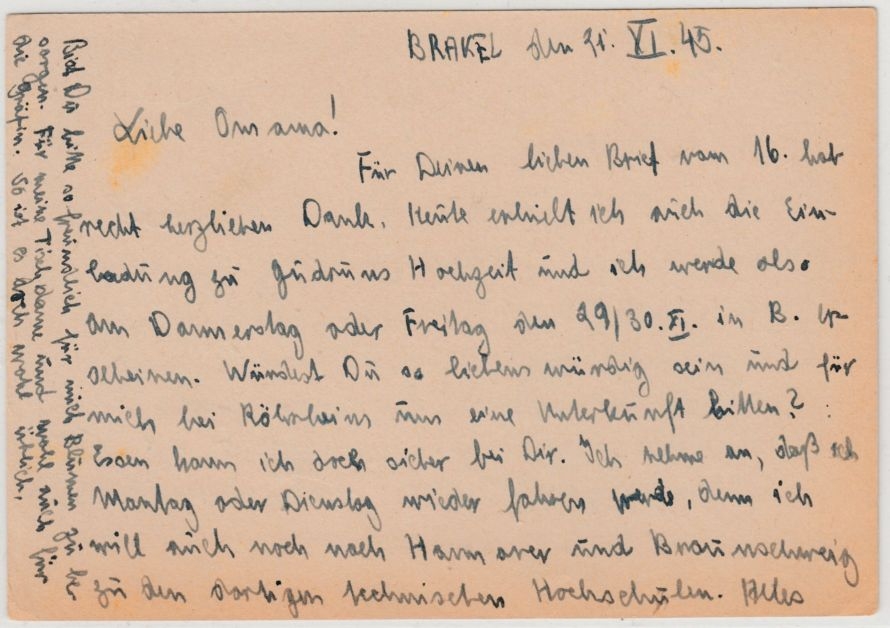 BRAKEL den 21. XI. 45.
Liebe Omama!
Für Deinen lieben Brief vom 16. hab
recht herzlichen Dank. Heute erhielt ich auch die Ein-
ladung zu Gudruns Hochzeit und ich werde also
am Donnerstag oder Freitag den 29/30. XI. in B. er-
scheinen. Würdest Du so liebenswürdig sein und für
mich bei um eine Unterkunft bitten?
Essen kann ich doch sicher bei Dir. Ich nehme an, daß ich
Montag oder Dienstag wieder fahren werde, denn ich
will auch noch nach Hannover und Braunschweig
zu den dortigen technischen Hochschulen. Alles
Du bitte so freundlich für mich Blumen zu be-
sorgen. Für meine Tischdame und wohl auch für
die Gräfin. So ist es doch wohl üblich.